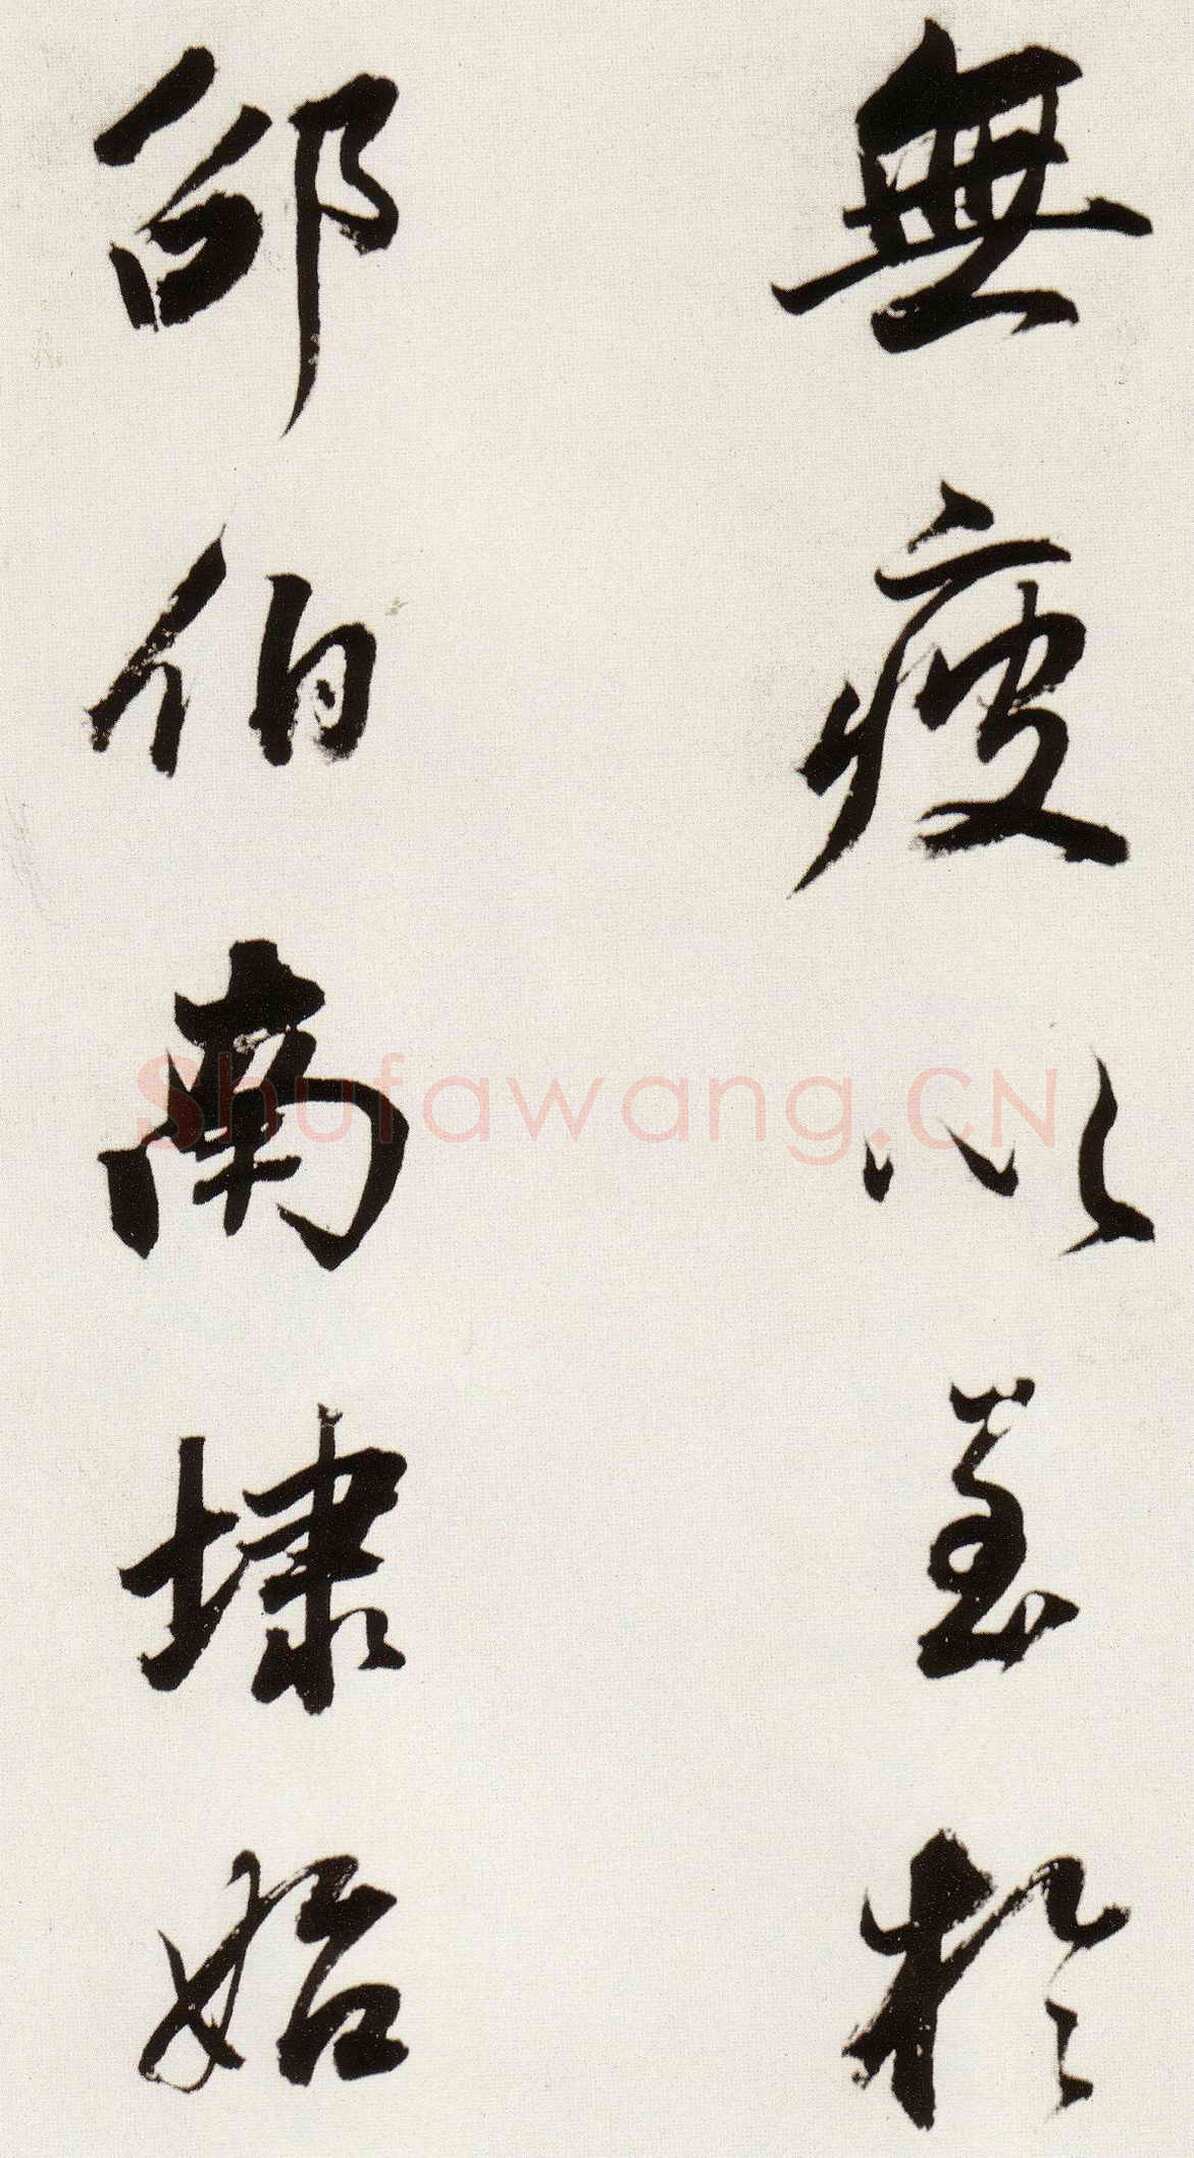 無瘦以至於
邵伯南埭始
Shufawang.CN